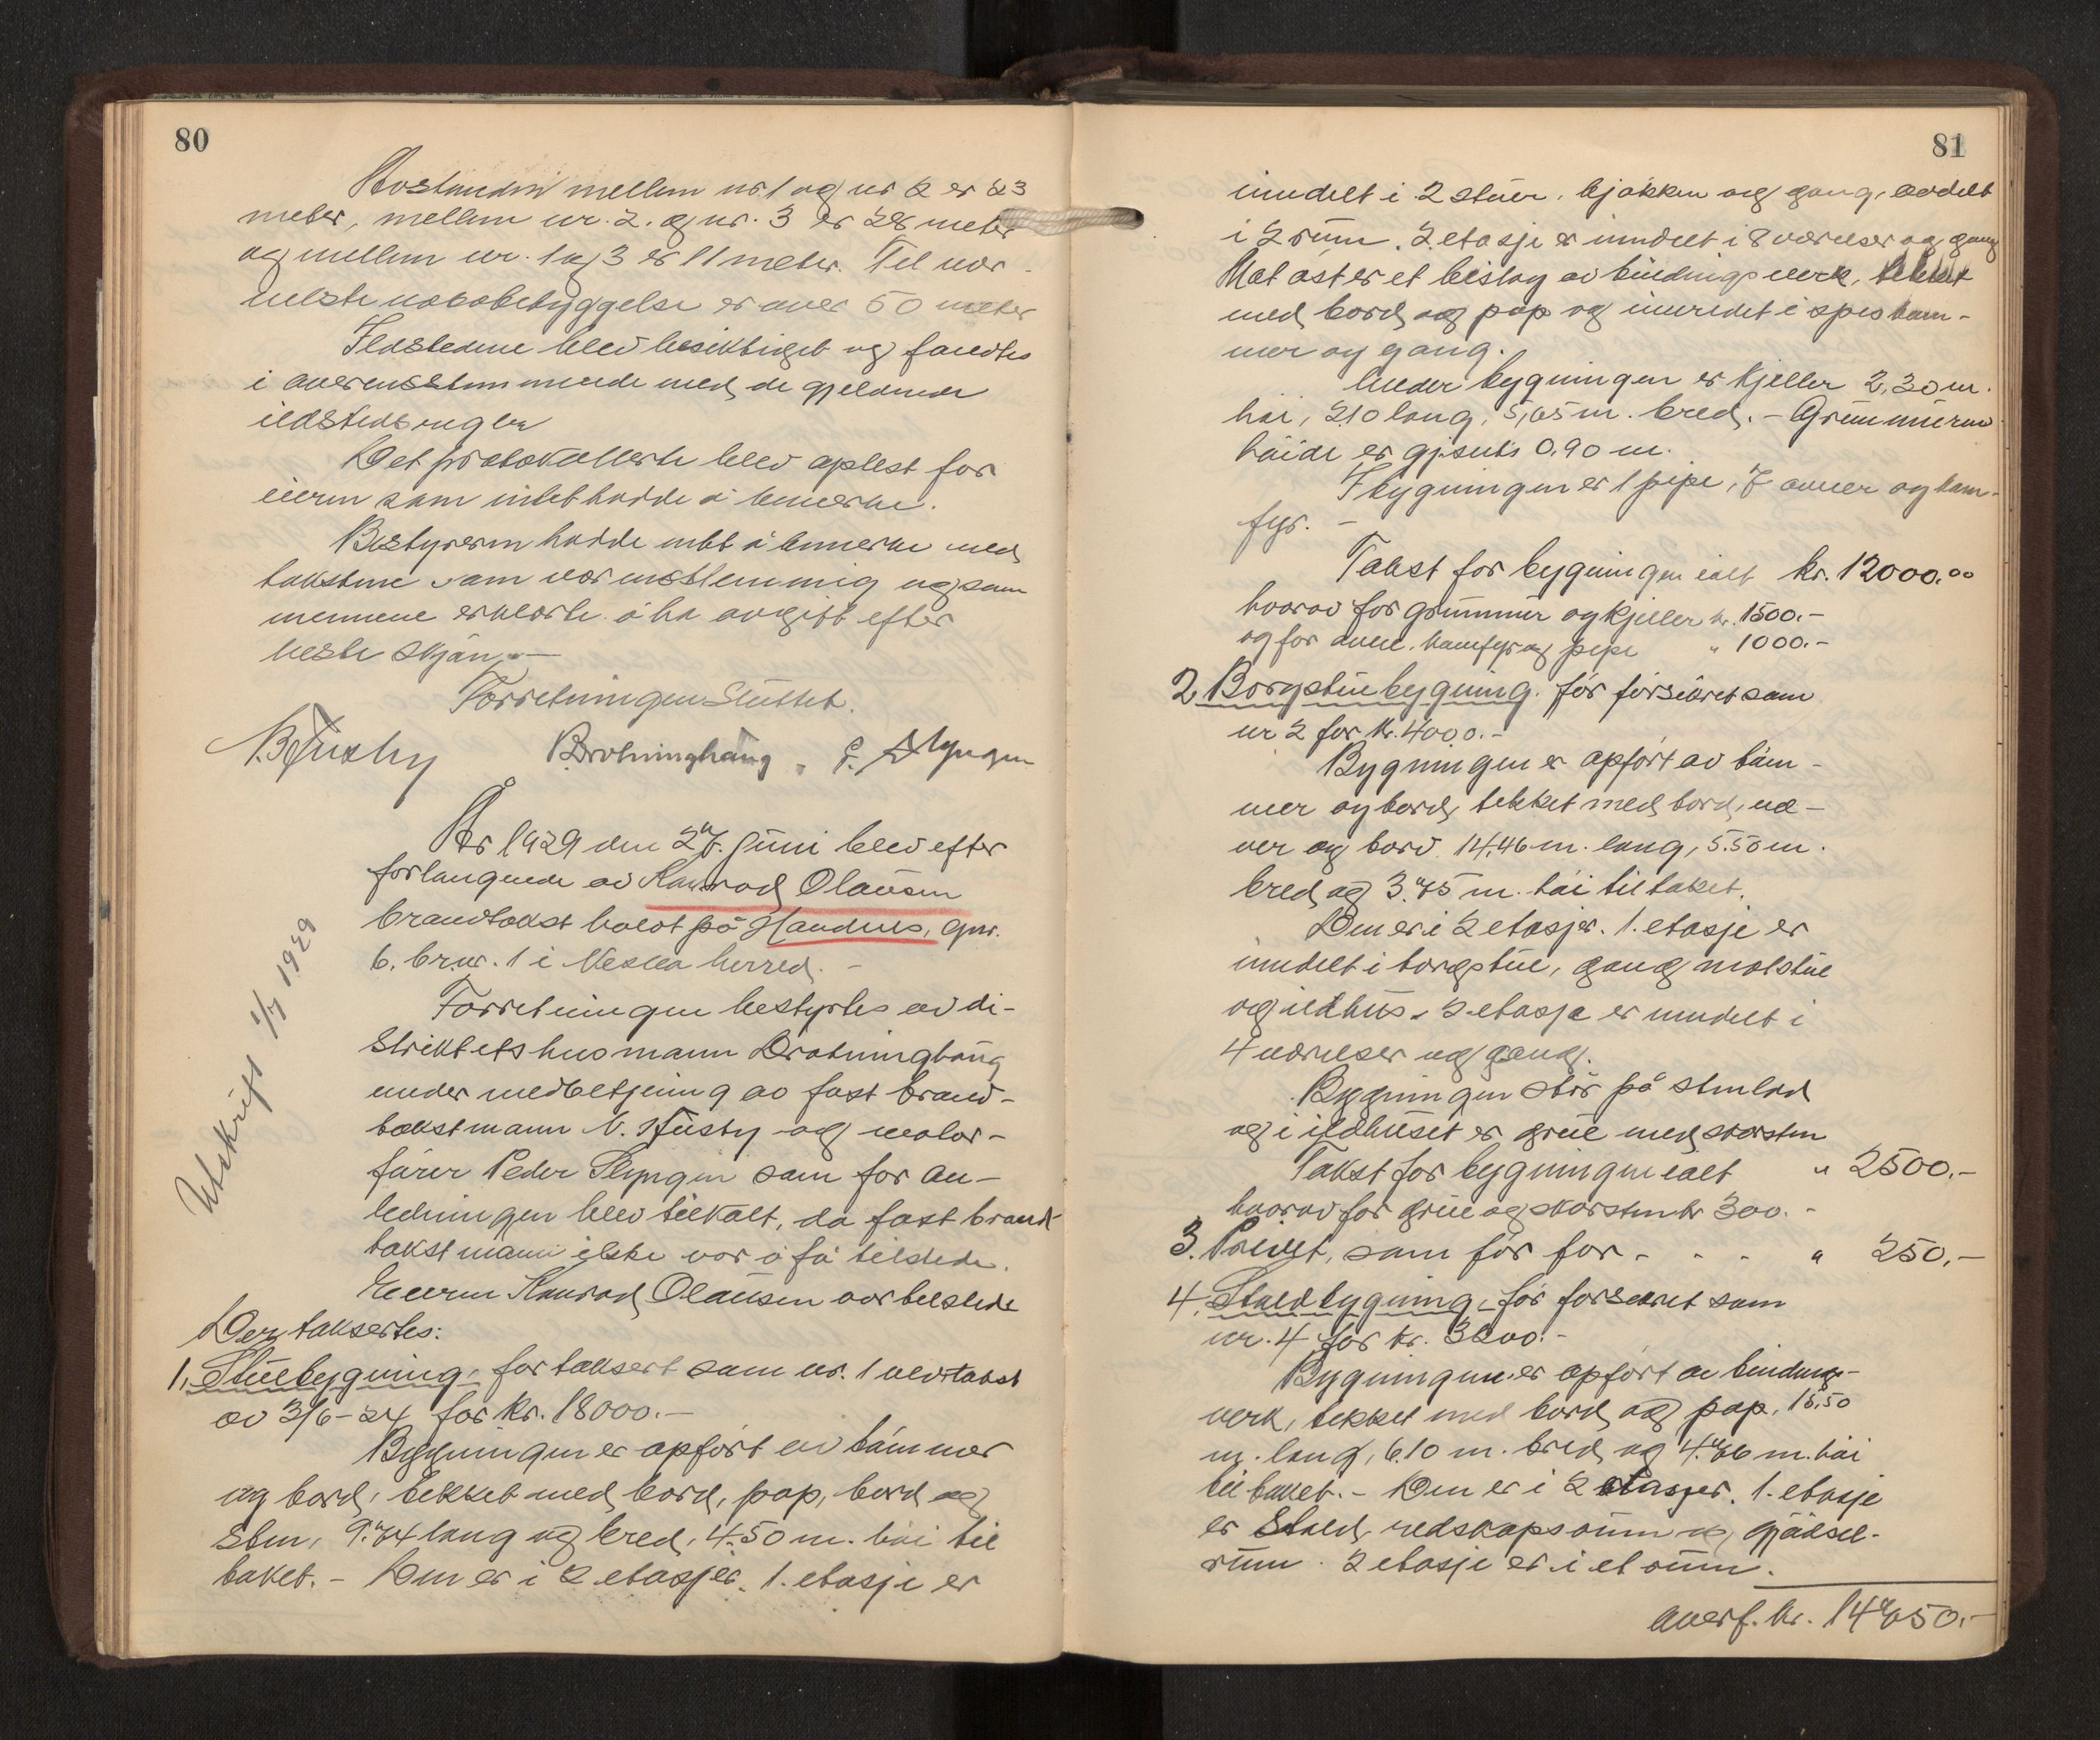 80
Avstanden mellem nr 1 og nr 2 er 23
meter, mellem nr. 2. og nr. 3 er 28 meter
og mellem nr. 1 og 3 er 11 meter. Til nær-
meste nabobebyggelse er over 50 meter
Ildstedene blev besiktiget og fandtes
i overensstemmende med de gjeldende
ildstedsregler
Det protokollerte blev oplest for
eieren som intet hadde å bemerke.
Bestyreren hadde intet å bemerke med
takstene som var enstemmig og som
mennene erklærte å ha avgitt efter
beste skjøn. —
Forretningen sluttet.
N. Husby Drotninghaug. P. Slyngen
År 1929 den 27. juni blev efter
forlangende av Konrad Olausen
brandtakst holdt på Handnes, gnr.
6. br.nr. 1 i Nesna herred. -
Forretningen bestyrtes av di-
striktets husmann Drotninghaug
under medbetjening av fast brand-
takstmann N. Husby og malar-
fører Peder Slyngen som for an-
ledningen blev tilkalt, da fast brand
takstmann ikke var å få tilstede.
Eieren Konrad Olausen var tilstede
Utskrift 1/7 1929
Der taksertes:
1, Stuebygning, før taksert som nr. 1 ved takst
av 3/6-24 for kr. 18000.—
Bygningen er opført av tømmer
og bord, tekket med bord, pap, bord og
sten, 9.74 lang og bred, 4.50 m. høi til
taket. - Den er i 2 etasjer. 1. etasje er
81
inndelt i 2 stuer, kjøkken og gang, avdelt
i 2 rum. 2. etasje er inndelt i 8 værelser og gang
Mot øst er et bislag av bindingsverk, tekket
med bord og pap og innredet i spiskam-
mer og gang.
Under bygningen er kjeller 2,30 m.
høi, 210 lang, 5,65 m. bred. - Grunnmurens
høide er gj.snits 0.90 m.
I bygningen er 1 pipe, 7 ovner og kom-
fyr. -
Takst for bygningen ialt kr. 12000.00
hvorav for grunnmur og kjeller kr. 1500.-
og for ovne. komfyr og pipe " 1000.-
2 Borgstuebygning. før forsikret som
nr 2 for kr. 4000.-
Bygningen er opført av tøm-
mer og bord, tekket med bord, næ-
ver og bord. 14,46 m. lang, 5.50 m.
bred og 3.75 m. høi til taket.
Den er i 2 etasjer. 1. etasje er
inndelt i borgstue, gang matstue
og ildhus. 2 etasje er inndelt i
4 værelser og gang.
Bygningen står på stenlad
og i ildhuset er grue med skorsten
Takst for bygningen ialt " 2500.-
hvorav for grue og skorsten kr 300.-
3. Privet, som før for - - - " 250.-
4. Staldbygning, før forsikret som
nr. 4 for kr. 3200.-
Bygningen er opført av bindings-
verk, tekket med bord og pap, 15,50
m. lang, 6.10 m. bred og 4.66 m. høi
til taket. - Den er i 2 etasjer. 1. etasje
er Stald, redskapsrum og gjødsel-
rum. 2 etasje er i et rum.
Overf. kr. 14750.-